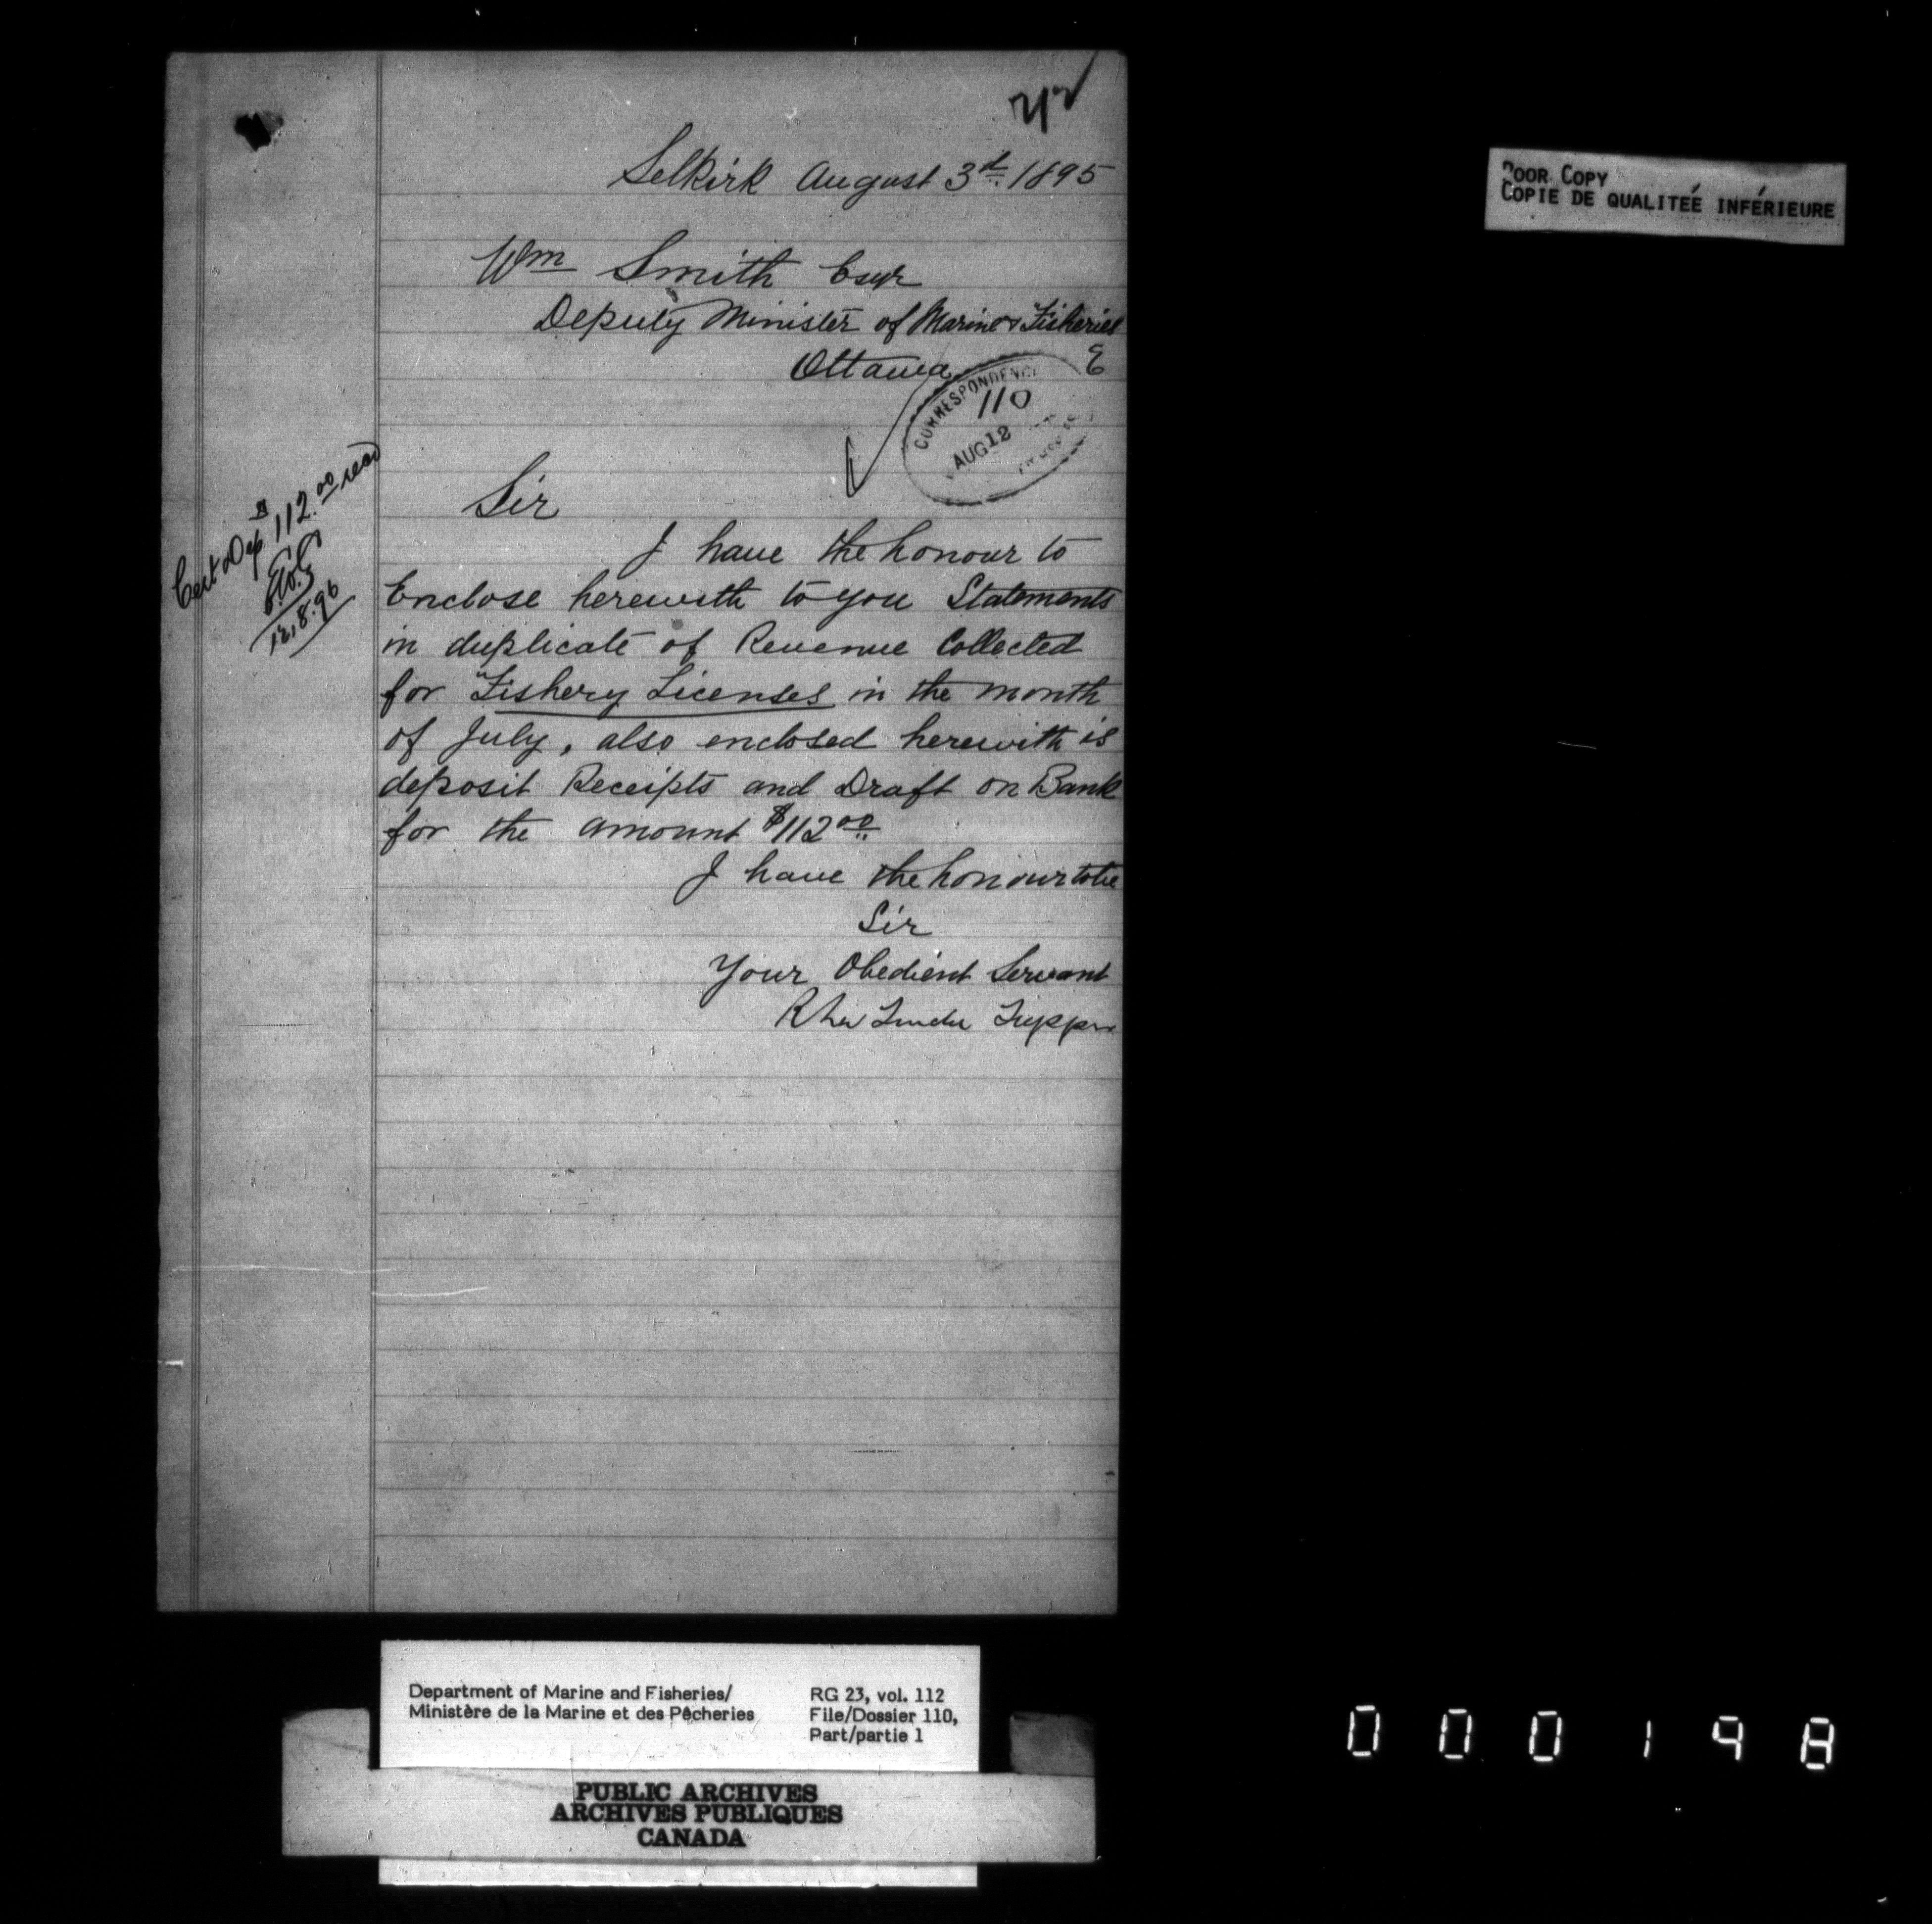 Selkirk August 3d. 1895
Wm Smith Esqr
Deputy Minister of Marine & Fisheries
Ottawa
E
CORRESPONDENCE
110
AUG 12
Cert Dep $112.00 recd
12.8.96
Sir
I have the honour to
Enclose herewith to you Statements
in duplicate of Revenue Collected
for Fishery Licenses in the month
of July, also enclosed herewith is
deposit Receipts and Draft on Bank
for the amount $112.00
I have the honour to be
Sir
Your Obedient Servant
POOR COPY
COPIE DE QUALITEÉ INFÉRIEURE
Department of Marine and Fisheries/
Ministère de la Marine et des Pêcheries
RG 23, vol. 112
File/Dossier 110,
Part/partie 1
PUBLIC ARCHIVES
ARCHIVES PUBLIQUES
CANADA
000198